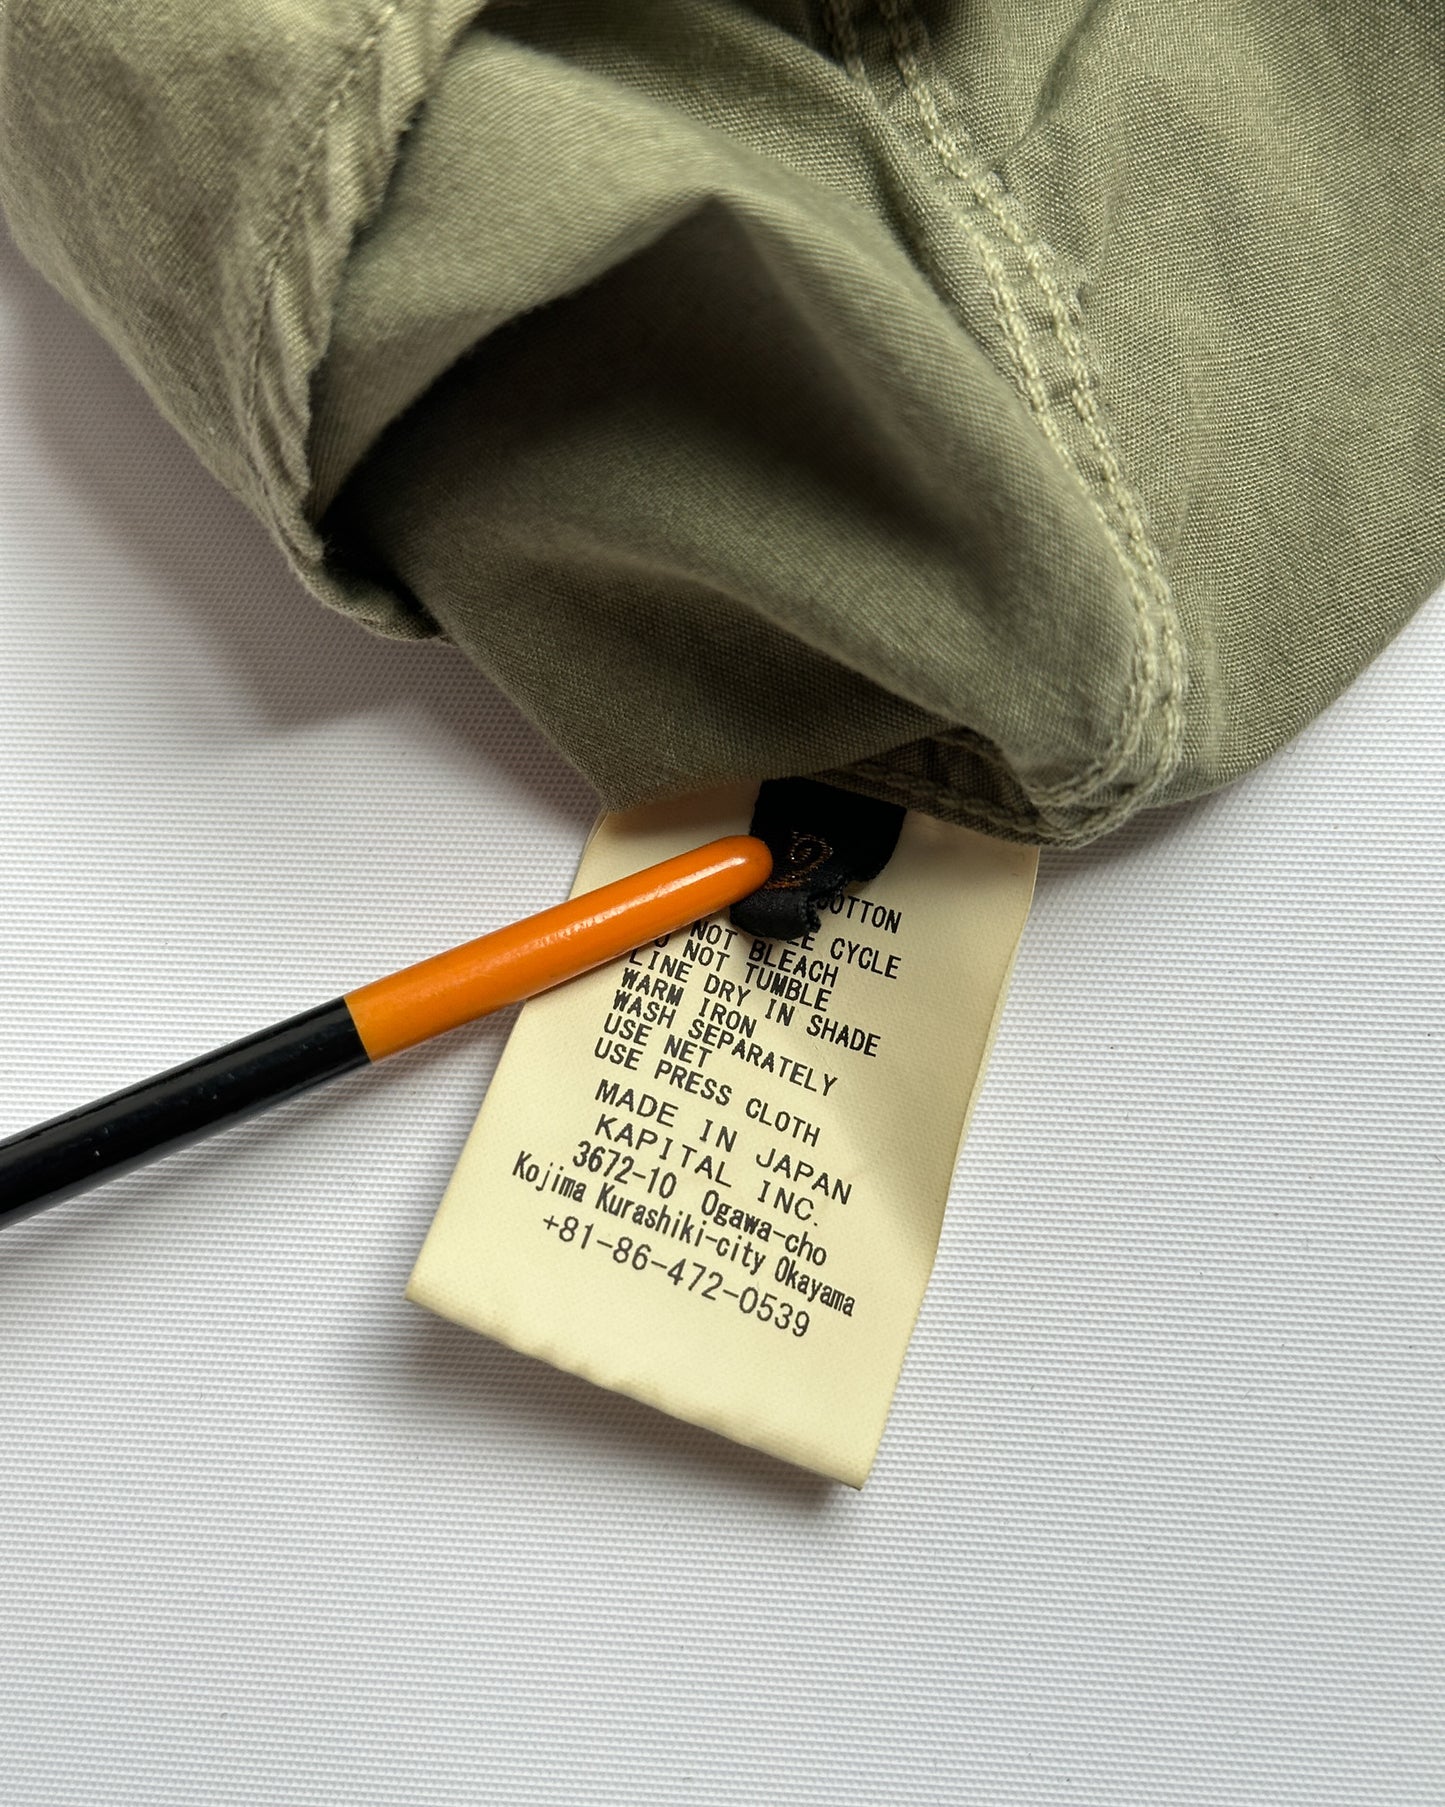 COTTON
CYCLE
NOT BLEACH
NOT TUMBLE
LINE DRY IN SHADE
WARM IRON
WASH SEPARATELY
USE NET
USE PRESS CLOTH
MADE IN JAPAN
KAPITAL INC.
3672-10 Ogawa-cho
Kojima Kurashiki-city Okayama
+81-86-472-0539